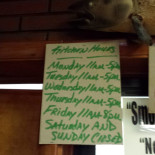 Monday 11am-5pm
Tuesday 11am-5pm
Wednesday 11am-5pm
Thursday 11am-5pm
Friday 11am-8pm
Saturday and
Sunday Closed
"Sm
"No